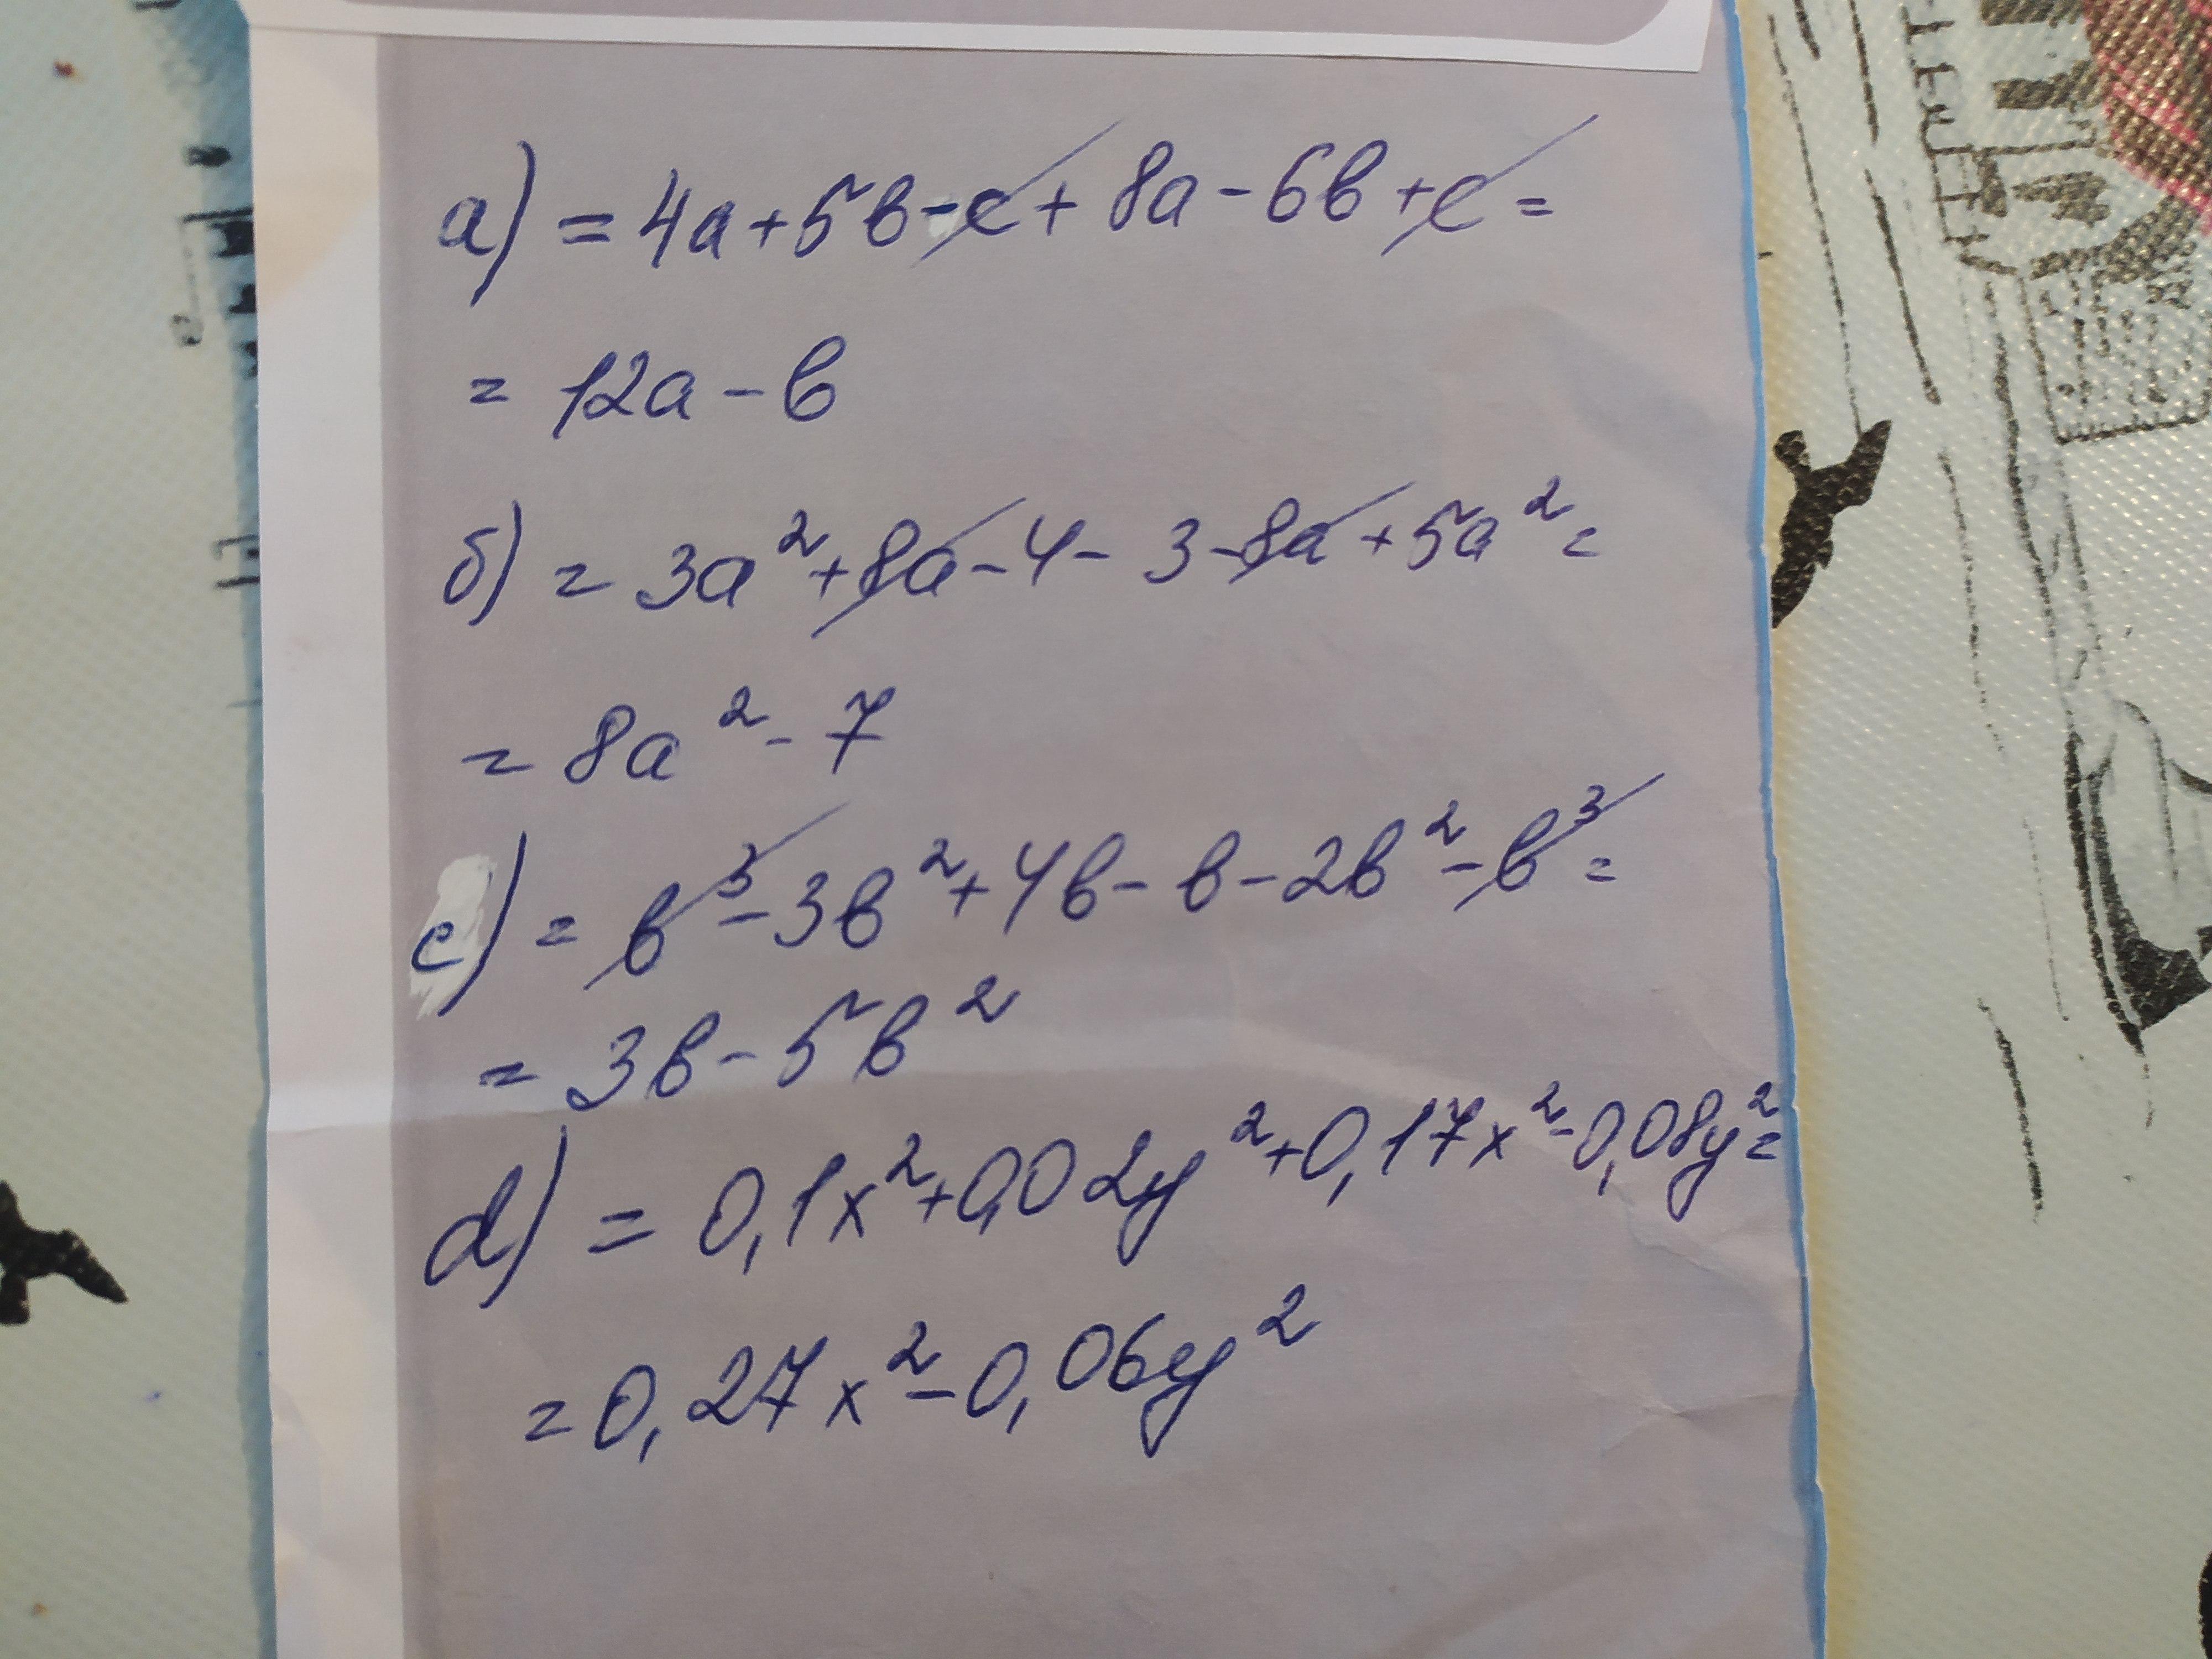 а) = 4а+5в-с+8а-6в+с=
= 12а-в
б) = 3а²+8а-4-3-8а+5а²=
= 8а²-7
с) = в³-3в²+4в-в-2в²-в³=
= 3в-5в²
d) = 0,1x²+0,02y²+0,17x²-0,08y²=
=0,27x²-0,06y²